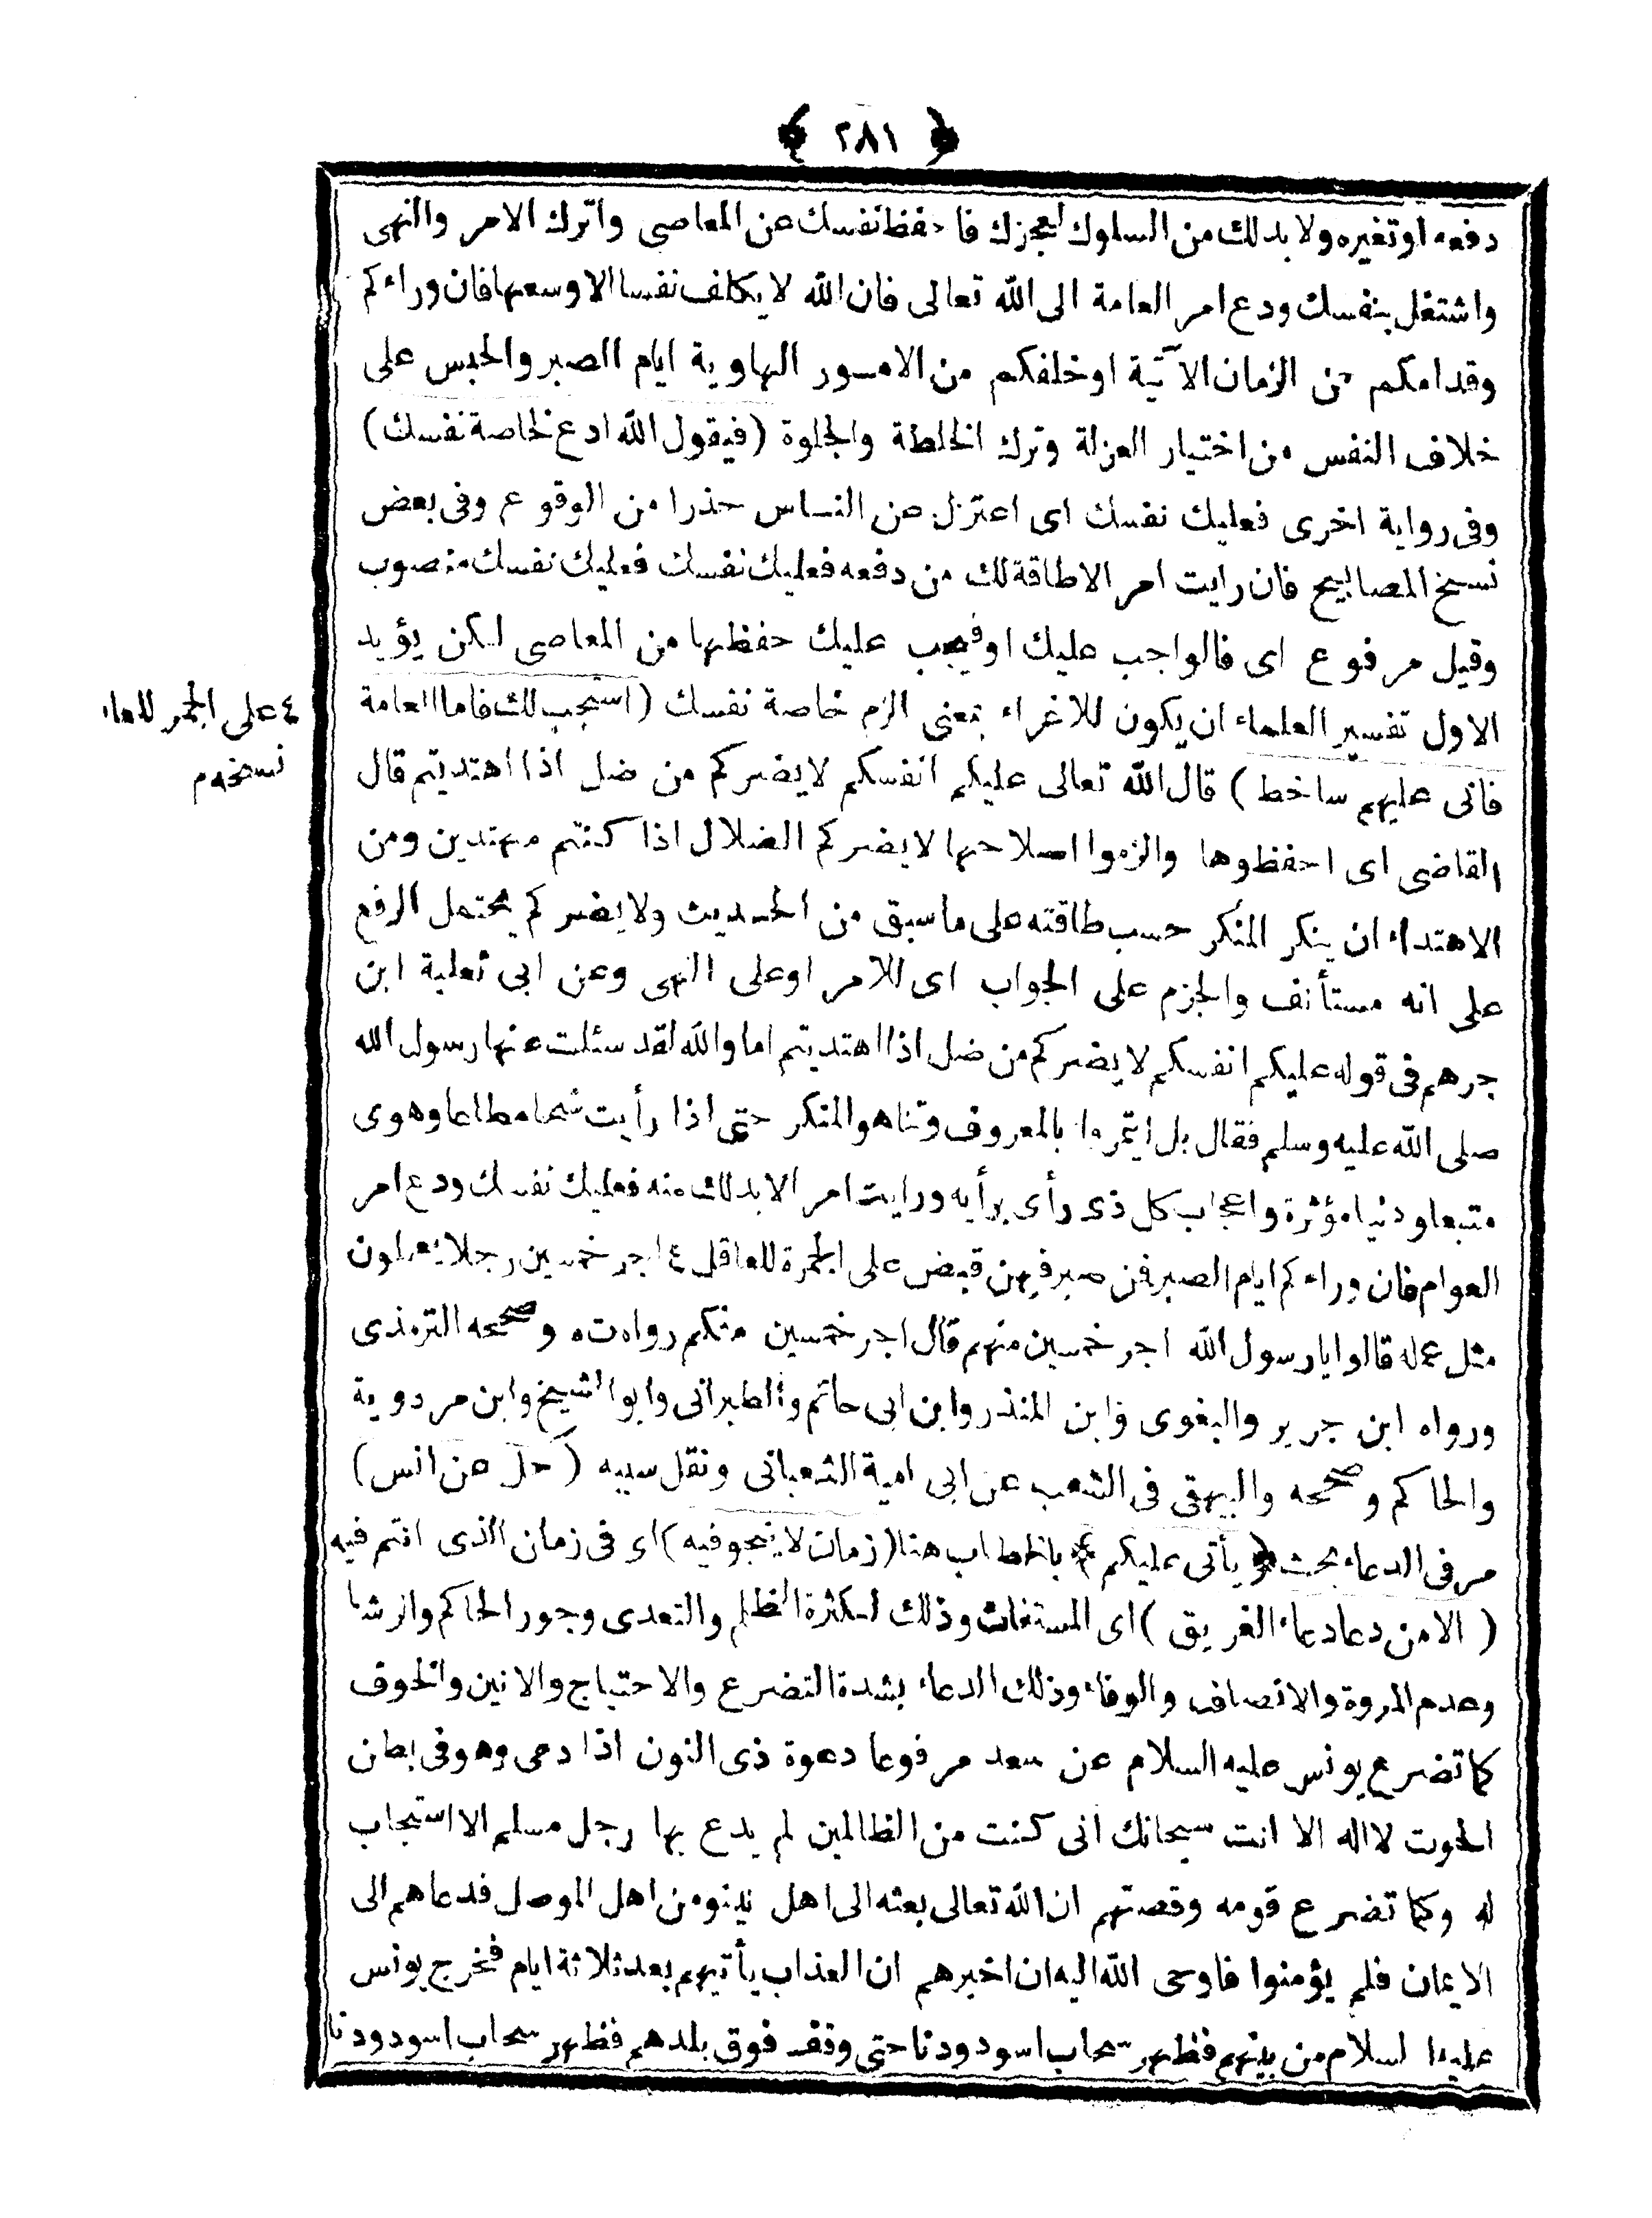 ﴿ ٢٨١ ﴾
دفعه او تغيره ولا بد لك من السلوك لعجزك فاحفظ نفسك عن المعاصى واترك الامر والنهى
واشتغل بنفسك ودع امر العامة الى الله تعالى فان الله لا يكلف نفسا الا وسعها فان وراءكم
وقدامكم من الزمان الآتية او خلفكم من الامور الهاوية ايام الصبر والحبس على
خلاف النفس من اختيار العزلة وترك الخلطة والجلوة (فيقول الله ادع لخاصة نفسك)
وفى رواية اخرى فعليك نفسك اى اعتزل عن الناس حذرا من الوقوع وفى بعض
نسخ المصابيح فان رايت امر الاطاقة لك من دفعه فعليك نفسك فعليك نفسك منصوب
وقيل مرفوع اى فالواجب عليك او فيجب عليك حفظها من المعاصى لكن يؤيد
الاول تفسير العلماء ان يكون للاغراء بمعنى الزم خاصة نفسك (استجب لك فاما العامة
فانى عليهم ساخط) قال الله تعالى عليكم انفسكم لا يضركم من ضل اذا اهتديتم قال
القاضى اى احفظوها والزموا اصلاحها لا يضركم الضلال اذا كنتم مهتدين ومن
الاهتداء ان ينكر المنكر حسب طاقته على ما سبق من الحديث ولا يضركم يحتمل الرفع
على انه مستأنف والجزم على الجواب اى للامر او على النهى وعن ابى ثعلبة ابن
جرهم فى قوله عليكم انفسكم لا يضركم من ضل اذا اهتديتم اما والله لقد سئلت عنها رسول الله
صلى الله عليه وسلم فقال بل ايتمروا بالمعروف وتناهو المنكر حتى اذا رأيت شحا مطاعا وهوى
متبعا ودنيا مؤثرة واعجاب كل ذى رأى برأيه ورايت امر الابد لك منه فعليك نفسك ودع امر
العوام فان وراءكم ايام الصبر فمن صبر فيهن قبض على الجمرة للعاقل ٤ اجر خمسين رجلا يعملون
مثل عمله قالوا يا رسول الله اجر خمسين منهم قال اجر خمسين منكم رواه ته وصححه الترمذى
ورواه ابن جرير والبغوى وابن المنذر وابن ابى حاتم والطبرانى وابو الشيخ وابن مردوية
والحاكم وصححه والبيهقى فى الشعب عن ابى امية الشعبانى ونقل سببه (حل عن انس)
مر فى الدعاء بحث ﴿يأتى عليكم﴾ بالخطاب هنا (زمان لا ينجو فيه) اى فى زمان الذى انتم فيه
(الا من دعا دعاء الغريق) اى المستغاث وذلك لكثرة الظلم والتعدى وجور الحاكم وارشا
وعدم المروة والانصاف والوفاء وذلك الدعاء بشدة التضرع والاحتياج والانين والخوف
كما تضرع يونس عليه السلام عن سعد مرفوعا دعوة ذى النون اذا دعى وهو فى بطن
الحوت لا اله الا انت سبحانك انى كنت من الظالمين لم يدع بها رجل مسلم الا استجاب
له وكما تضرع قومه وقصتهم ان الله تعالى بعثه الى اهل نينو من اهل الموصل فدعاهم الى
الايمان فلم يؤمنوا فاوحى الله اليه ان اخبرهم ان العذاب يأتيهم بعد ثلاثة ايام فخرج يونس
عليه السلام من بينهم فظهر سحاب اسود ودنا حتى وقف فوق بلدهم فظهر سحاب اسود ودنا
٤ على الجمر للعا
نسخه م